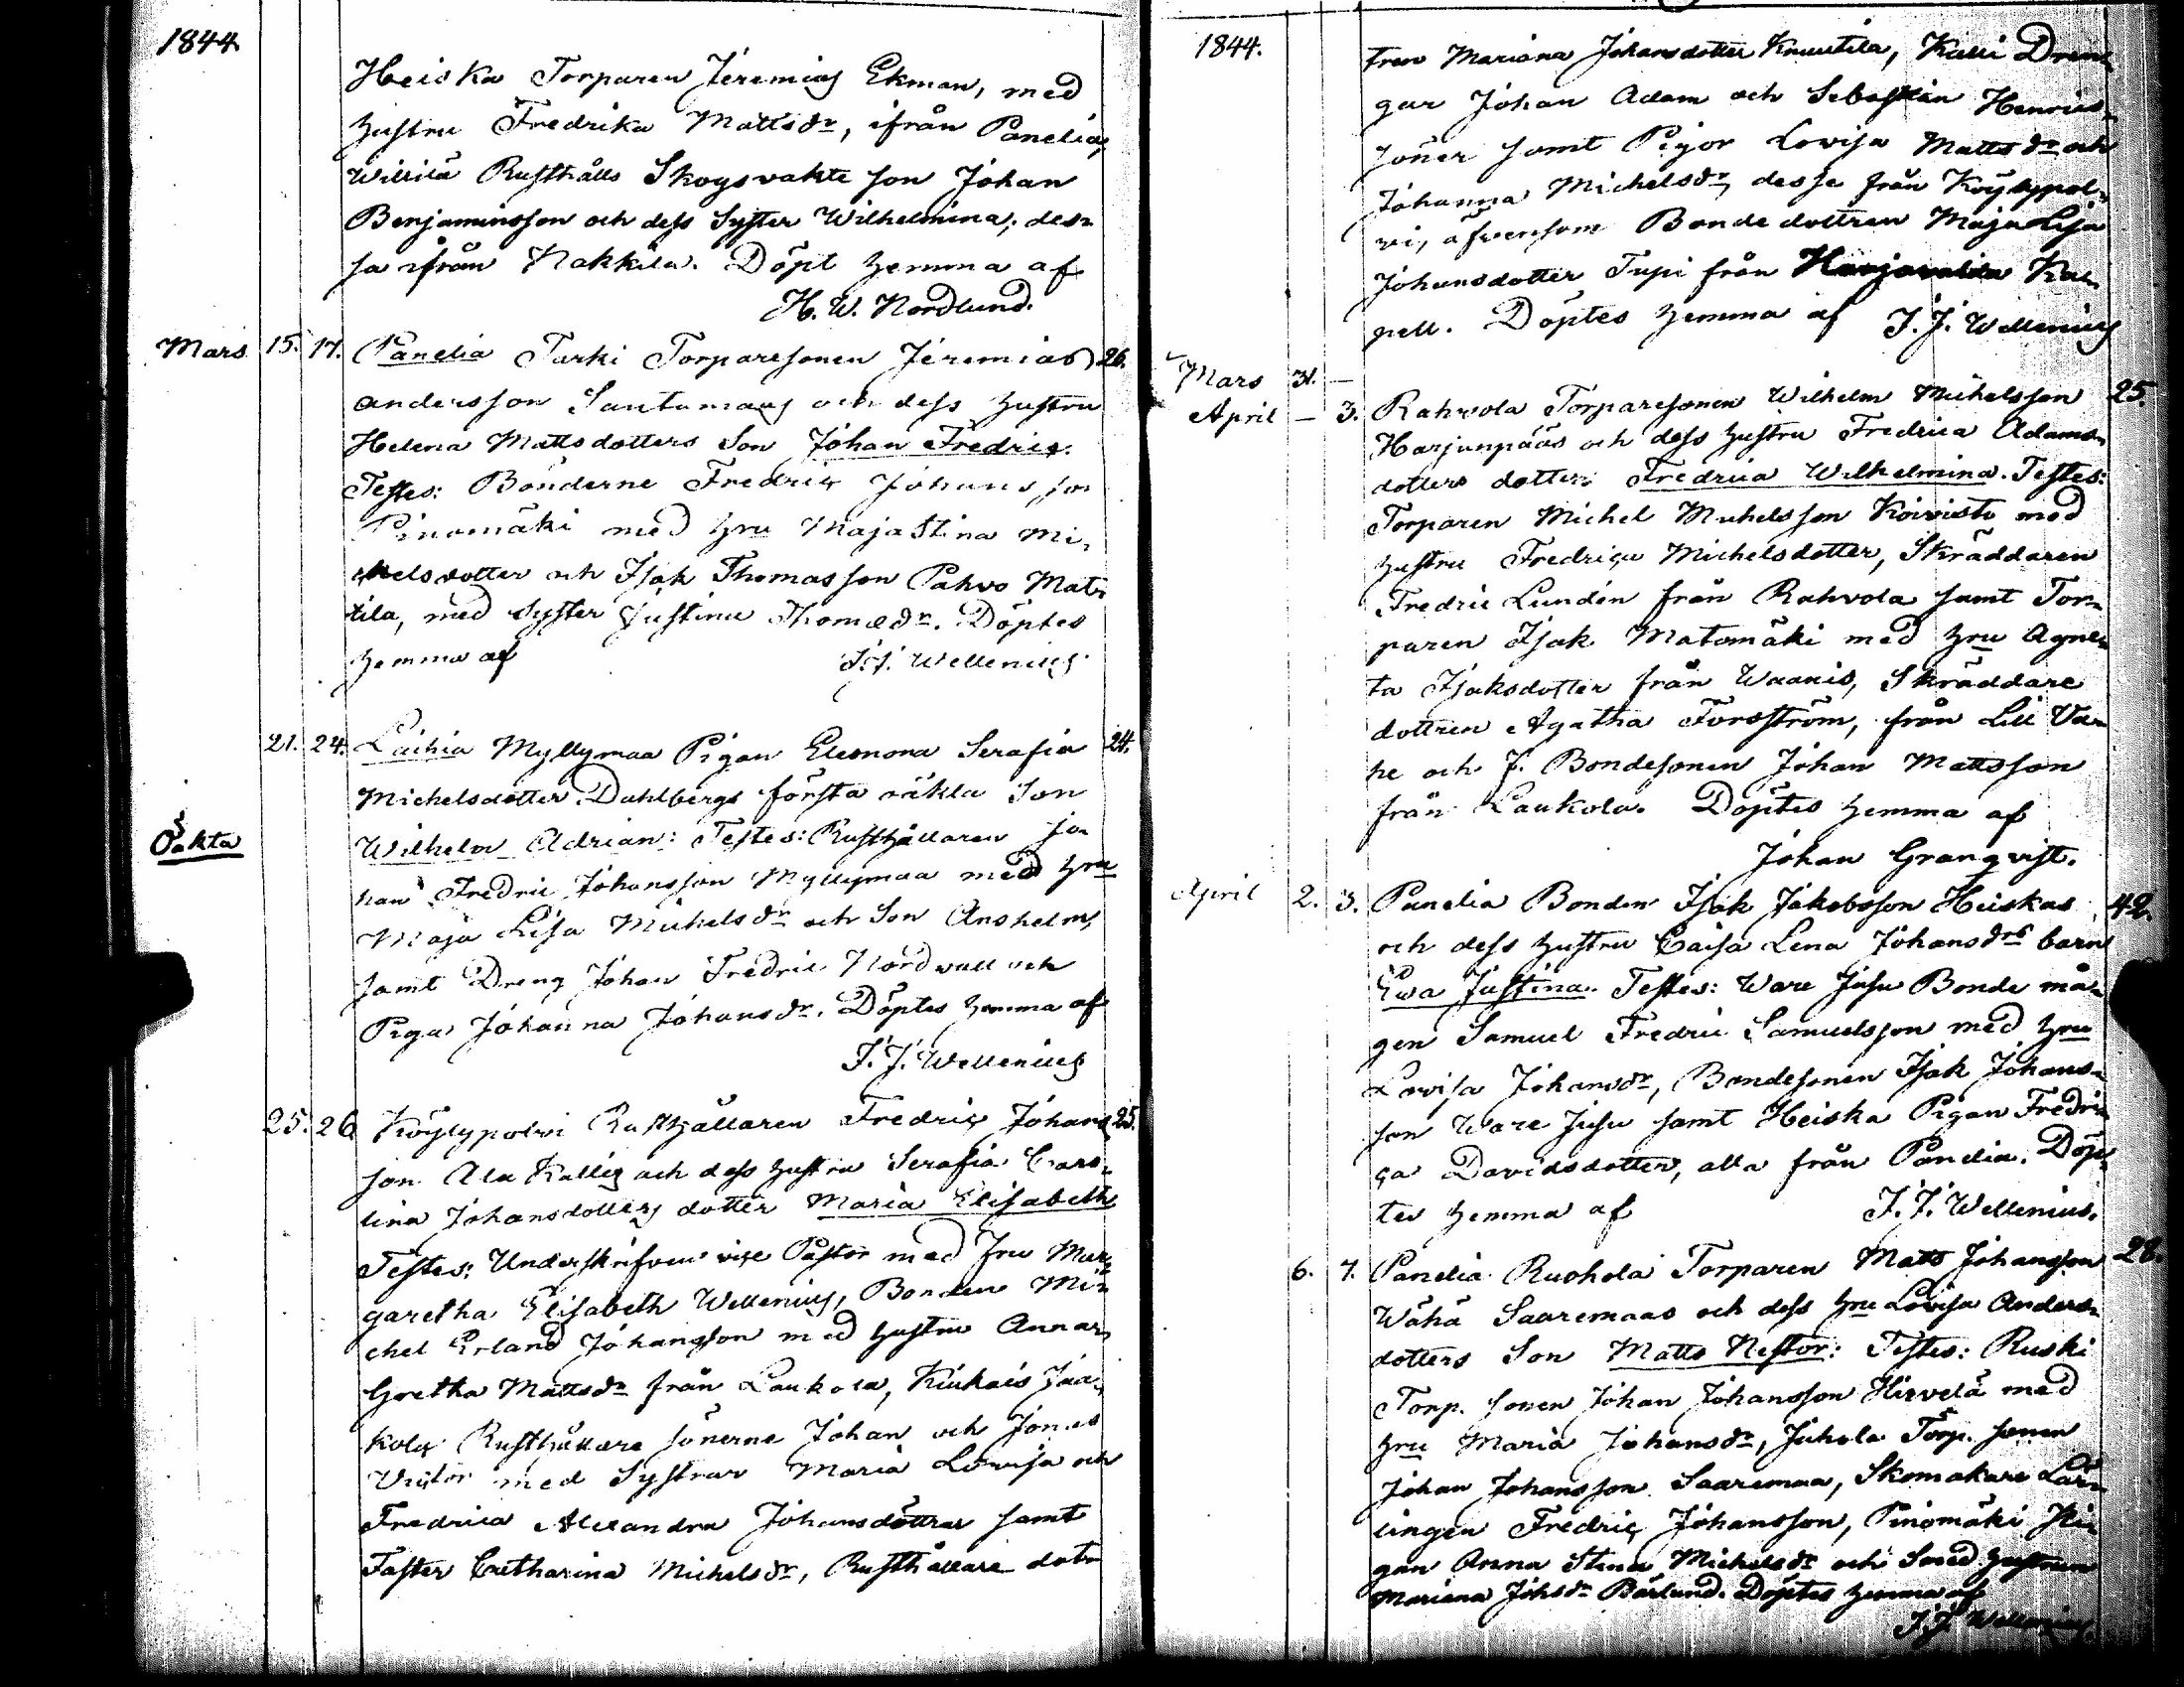 1844.
Heiska Torparen Jeremias Ekman, med
hustru Fredrika Mattsdr, ifrån Panelia,
Willilä Rusthålls Skogsvakte son Johan
Benjaminsson och dess Syster Wilhelmina; des-
sa ifrån Nakkila. Döpt hemma af
H. W. Nordlund.
Mars 15. 17. Panelia Turki Torparesonen Jeremias 26.
Andersson Santamaas och dess hustru
Helena Mattsdotters Son Johan Fredric.
Testes: Bönderne Fredric Johansson
Pinomäki med hru Maja Stina Mi-
chelsdotter och Isak Thomasson Pahvo Mat-
tila, med Syster Justina Thomædr. Döptes
hemma af J. J. Wellenius
21. 24. Laihia Myllymaa Pigan Eleonora Serafia 24.
Michelsdotter Dahlbergs första oäkta Son
Oäkta
Wilhelm Adrian: Testes: Rusthållaren Jo-
han Fredric Johansson Myllymaa med hru
Maja Lisa Michelsdr och Son Anshelm,
samt Dreng Johan Fredric Nordwall och
Piga Johanna Johansdr. Döptes hemma af
J. J. Wellenius
25. 26. Köylypolvi Rusthållaren Fredric Johans 25.
son Ala Kallis och dess hustru Serafia Caro-
lina Johansdotters dotter Maria Elisabeth
Testes: Underskrifven vice Pastor med fru Mar-
garetha Elisabeth Wellenius, Bonden Mi-
chel Erland Johansson med hustru Anna
Gretha Mattsdr från Laukola, Kiukais Jaa-
kola Rusthållare sönerne Johan och Jonas
Victor med Systrar Maria Lovisa och
Fredrica Alexandra Johansdöttrar samt
Faster Catharina Michelsdr, Rusthållare dot-
1844.
tren Mariana Johansdotter Knuutila, Kalli Dren-
gar Johan Adam och Sebastian Henrics-
söner samt Pigor Lovisa Mattsdr och
Johanna Michelsdr, desse från Köylypol-
vi, äfvensom Bonde dottren Maja Lisa
Johansdotter Tupi från Harjavalda Ka-
pell. Döptes hemma af J. J. Wellenius
Mars 31. —
April — 3. Rahvola Torparesonen Wilhelm Michelsson 25.
Harjunpääs och dess hustru Fredrica Adams-
dotters dotter Fredrica Wilhelmina. Testes:
Torparen Michel Michelsson Koivisto med
hustru Fredrica Michelsdotter, Skräddaren
Fredric Lundén från Rahvola samt Tor-
paren Isak Matomäki med hru Agne-
ta Isaksdotter från Waanis, Skräddare
dottren Agatha Forsström, från Lill Va-
he och f. Bondesonen Johan Mattsson
från Laukola. Döptes hemma af
Johan Granqvist.
April 2. 3. Panelia Bonden Isak Jakobsson Heiskas 42.
och dess hustru Caisa Lena Johansdrs barn
Ewa Justina. Testes: Ware Jusu Bonde må-
gen Samuel Fredric Samuelsson med hru
Lovisa Johansdr, Bondesonen Isak Johans-
son Ware Jusu samt Heiska Pigan Fredri-
ca Davidsdotter, alla från Panelia. Döp-
tes hemma af J. J. Wellenius.
6. 7. Panelia Ruohola Torparen Matts Johansson 28.
Wähä Saaremaas och dess hru Lovisa Anders-
dotters Son Matts Nestor: Testes: Ruski
Torp. sonen Johan Johansson Hirvelä med
hru Maria Johansdr, Juhola Torp. sonen
Johan Johansson Saaremaa, Skomakare Lär-
lingen Fredric Johansson, Pinomäki Pi-
gan Anna Stina Michelsdr och Smed hustrun
Mariana Johsdr Bärlund. Döptes hemma af
J. J. Wellenius